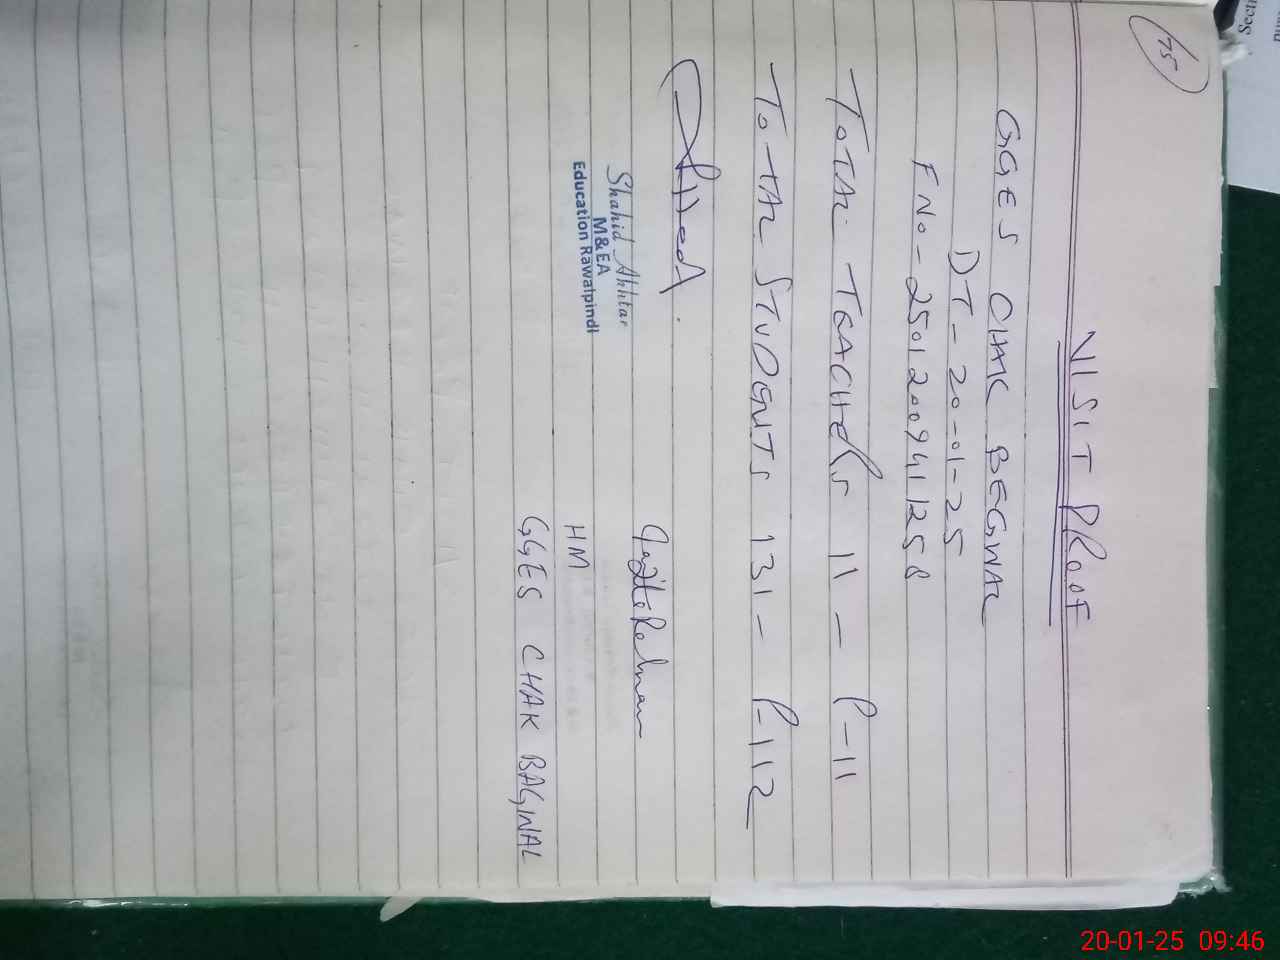 75
VISIT PROOF
GGES CHAK BEGWAL
DT - 20-01-25
F No - 2501200941125
TOTAL TEACHERS 11 - P-11
TOTAL STUDENTS 131 - P-112
Shahid Akhtar
M&EA
Education Rawalpindi
HM
GGES CHAK BAGWAL
20-01-25 09:46